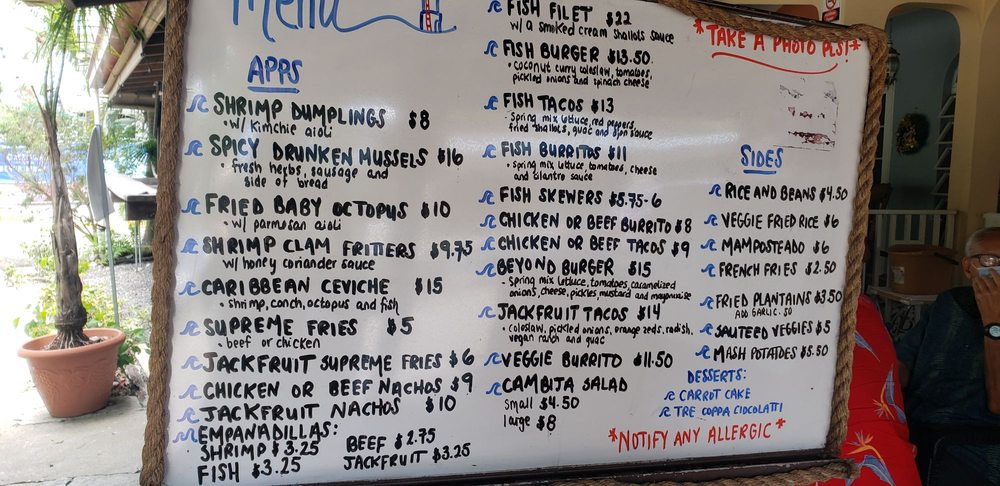 Menu
APPS
SHRIMP DUMPLINGS $8
• w/ Kimchie aioli
SPICY DRUNKEN MUSSELS $16
• fresh herbs, sausage and
side of bread
FRIED BABY OCTOPUS $10
• w/ parmesan aioli
SHRIMP CLAM FRITTERS $9.75
w/ honey coriander sauce
CARIBBEAN CEVICHE $15
• shrimp, conch, octopus and fish
SUPREME FRIES $5
• beef or chicken
JACKFRUIT SUPREME FRIES $6
CHICKEN OR BEEF NACHOS $9
JACKFRUIT NACHOS $10
EMPANADILLAS:
SHRIMP $3.25 BEEF $2.75
FISH $3.25 JACKFRUIT $3.25
FISH FILET $22
w/ a smoked cream shallots sauce
FISH BURGER $13.50
• coconut curry coleslaw, tomatoes,
pickled onions and spinach cheese
FISH TACOS $13
• Spring mix lettuce, red peppers,
fried shallots, guac and dijon sauce
FISH BURRITOS $11
• spring mix lettuce, tomatoes, cheese
and cilantro sauce
FISH SKEWERS $5.75-6
CHICKEN OR BEEF BURRITO $8
CHICKEN OR BEEF TACOS $9
BEYOND BURGER $15
• Spring mix lettuce, tomatoes, caramelized
onions, cheese, pickles, mustard and mayonnaise
JACKFRUIT TACOS $14
• coleslaw, pickled onions, orange zeds, radish,
vegan ranch and guac
VEGGIE BURRITO $11.50
CAMBIJA SALAD
small $4.50
large $8
*TAKE A PHOTO PLS!*
SIDES
RICE AND BEANS $4.50
VEGGIE FRIED RICE $6
MAMPOSTEADO $6
FRENCH FRIES $2.50
FRIED PLANTAINS $3.50
ADD GARLIC .50
SAUTEED VEGGIES $5
MASH POTATOES $5.50
DESSERTS:
CARROT CAKE
TRE COPPA CIOCOLATTI
*NOTIFY ANY ALLERGIC*